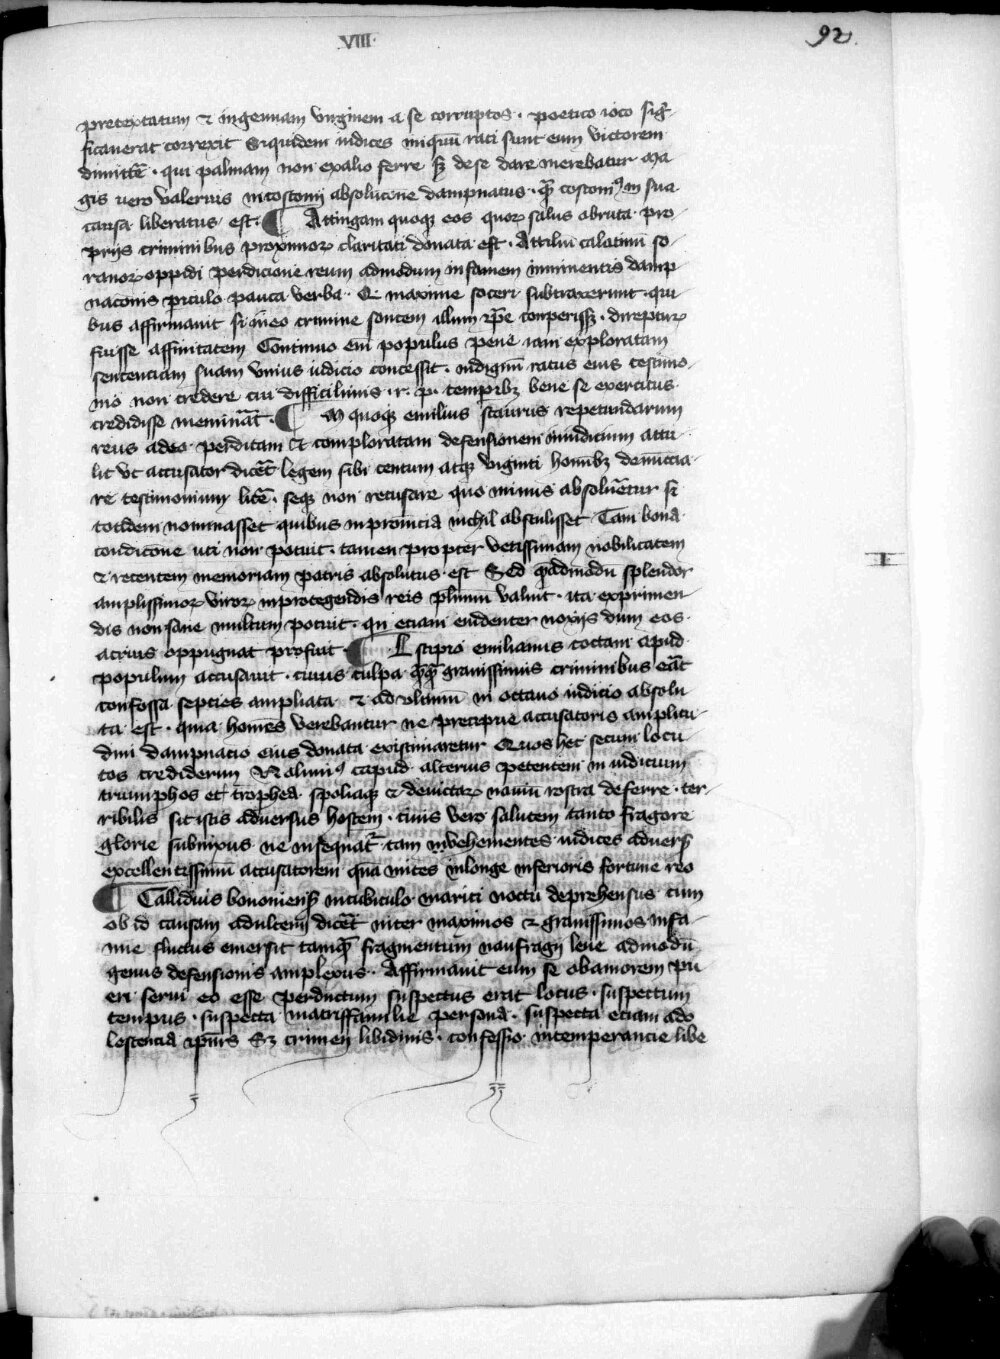 VIII
92
pretextatum ⁊ ingenuam virginem a se corruptos · poetico ioco sig̅
ficauerat correxit Siquidem iudices iniquū rati sunt eum victorem
dimittē · qui palmam non ex alio ferre sꝫ de se dare merebatur Ma
gis vero valerius in costonij absolucōne dampnatus · qͣ̄ costoniꝰ in sua
causa liberatus est · ¶ Attingam quoqꝫ eos quoꝝ salus obruta pro
prijs criminibus proximoꝝ claritati donata est · Attiliū calatinū so
ranoꝝ oppidi perdicione reum admodum infamem imminentis damp
nacōnis periculo pauca verba · Q maxime soceri subtraxerunt · qui
bus affirmauit si in eo crimine sontem illum ip̄e comperissꝫ · direptuꝝ
fuisse affinitatem Continuo eni populus pene iam exploratam
sentenciam suam vnius iudicio concessit · indignū ratus eius testimo
nio non credere cui difficilimis · r · p · temporibꝫ bene se exercitus
credidisse meminat̄ · ¶ M quoqꝫ emilius scaurus repetundarum
reus adeo perditam et comploratam defensionem in iudicium attu
lit vt accusator dicēt legem sibi centum atqꝫ viginti hominibꝫ denuncia
re testimonium licē · seqꝫ non recusare quo minus absoluētur si
totidem nominasset quibus in prouincia nichil abstulisset Tam bona
condicōne vti non potuit · tamen propter vetissimam nobilitatem
⁊ recentem memoriam patris absolutus est Sed qͣ̄admodū splendor
amplissimoꝝ viroꝝ in protegendis reis plurimū valuit · ita exprimen
dis non sane multum potuit · qn etiam euidenter noxijs dum eos
acrius oppugnat profuit ¶ L scipio emilianus cottam apud
populum accusauit · cuius culpa qͣ̄qͣ̄ grauissimis criminibus eāt
confossa septies ampliata ⁊ ad vltimū in octauo iudicio absolu
ta est · quia homēs verebantur ne precipue accusatoris amplitu
dini dampnacio eius donata existimaretur Quos hec secum locu
tos crediderim Nolumꝰ capud alterius petentem in iudicium
triumphos et trophea spoliaqꝫ ⁊ deuictaꝝ nauiū rostra deferre · ter
ribilis sit istis aduersus hostem · ciuis vero salutem tanto fragore
glorie subnixus ne insequat̄ tam in vehementes iudices aduers̄
excellentissimū accusatorem quā mites in longe inferioris fortune reo
¶ Callidius bononiens̄ in cubiculo mariti noctu deprehensus cum
ob id causam adulterij dicēt inter maximos ⁊ grauissimos infa
mie fluctus emersit tamqͣ̄ fragmentum naufragij leue admodū
genus defensionis amplexus · Affirmauit eum se ob amorem pu
eri serui eo esse perductum suspectus erat locus · suspectum
tempus · suspecta matrisfamilie persona · suspecta etiam ado
lescencia ip̄ius Sꝫ crimen libidinis · confessio intemperancie libe
I